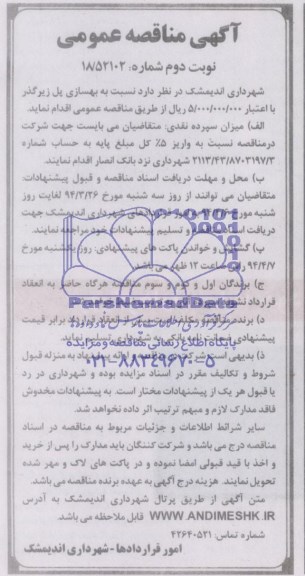 آگهی مناقصه عمومی
نوبت دوم شماره: ۱۸/۵۲۱۰۲
شهرداری اندیمشک در نظر دارد نسبت به بهسازی پل زیرگذر
با اعتبار ۵/۰۰۰/۰۰۰/۰۰۰ ریال از طریق مناقصه عمومی اقدام نماید.
الف) میزان سپرده نقدی: متقاضیان می بایست جهت شرکت
درمناقصه نسبت به واریز ۵٪ کل مبلغ پایه به حساب شماره
۲۱۱۳/۴۳/۸۷۰۳۱۹۷/۳ شهرداری نزد بانک انصار اقدام نمایند.
ب) محل و مهلت دریافت اسناد مناقصه و قبول پیشنهادات:
متقاضیان می توانند از روز سه شنبه مورخ ۹۴/۳/۲۶ لغایت روز
شنبه مورخ شهرداری اندیمشک جهت
دریافت اسناد و تسلیم پیشنهادات خود مراجعه نمایند.
پ) گشایش و خواندن پاکت های پیشنهادی: روز یکشنبه مورخ
۹۴/۴/۷ ساعت ۱۲ ظهر می باشد.
ج) برندگان اول و دوم و سوم مناقصه هرگاه حاضر به انعقاد
قرارداد نشوند
د) برنده قرارداد برابر قیمت
پیشنهادی ضمانت نامه بانکی تسلیم نماید.
ذ) بدیهی است شرکت در مناقصه و ارائه پیشنهاد به منزله قبول
شروط و تکالیف مقرر در اسناد مزایده بوده و شهرداری در رد
یا قبول هر یک از پیشنهادات مختار است. به پیشنهادات مخدوش
فاقد مدارک لازم و مبهم ترتیب اثر داده نخواهد شد.
سایر شرائط اطلاعات و جزئیات مربوط به مناقصه در اسناد
مناقصه درج می باشد و شرکت کنندگان باید مدارک را پس از خرید
و اخذ با قید قبولی امضا نموده و در پاکت های لاک و مهر شده
تحویل نمایند. هزینه درج آگهی به عهده برنده مناقصه می باشد.
متن آگهی از طریق پرتال شهرداری اندیمشک به آدرس
WWW.ANDIMESHK.IR قابل ملاحظه می باشد.
شماره تماس: ۴۲۶۴۰۵۲۱
امور قراردادها - شهرداری اندیمشک
ParsNamadData
پایگاه اطلاع رسانی مناقصه و مزایده
۰۲۱-۸۸۳۴۹۶۷۰-۵